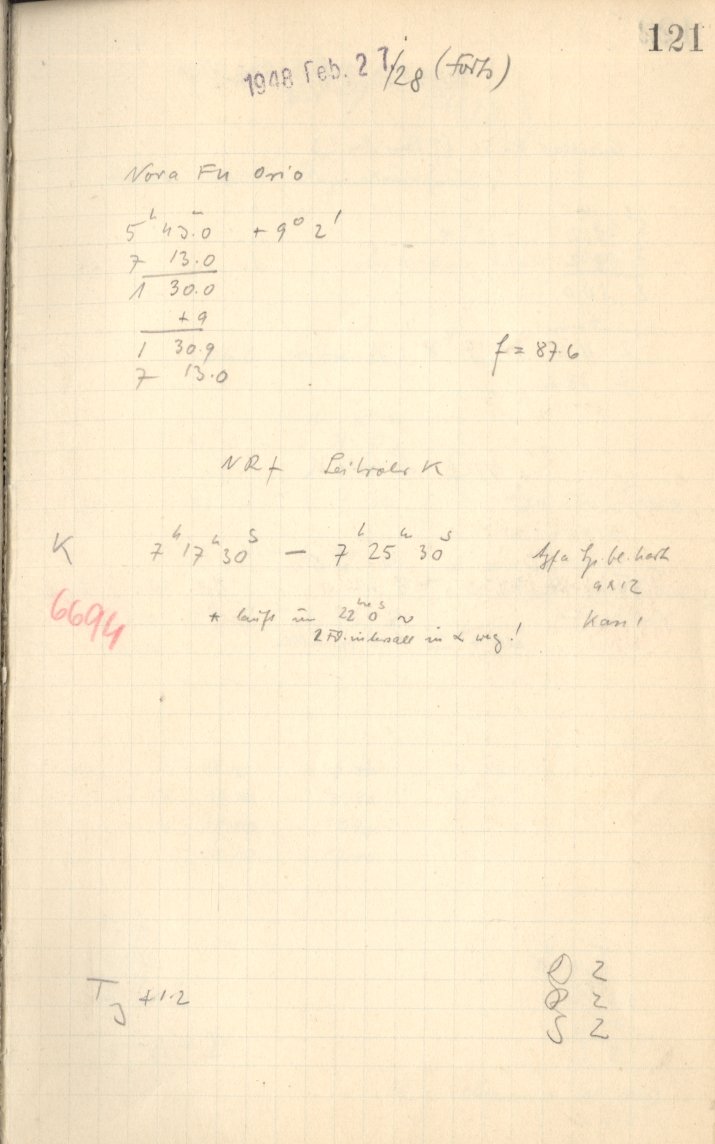 121
1948 Feb. 27/28 (Forts)
Nova FU Orio
5ʰ 43ᵐ.0 + 9° 2'
7 13.0
1 30.0
+9
1 30.9
7 13.0
f = 87.6
NRf Leitrohr K
K 7ʰ 17ᵐ 30ˢ — 7ʰ 25ᵐ 30ˢ Agfa
9x12
6694
* läuft um 22ᵐ 0ˢ ~
2 FD. intervall in α weg!
T +1.2
D 2
R 2
S 2